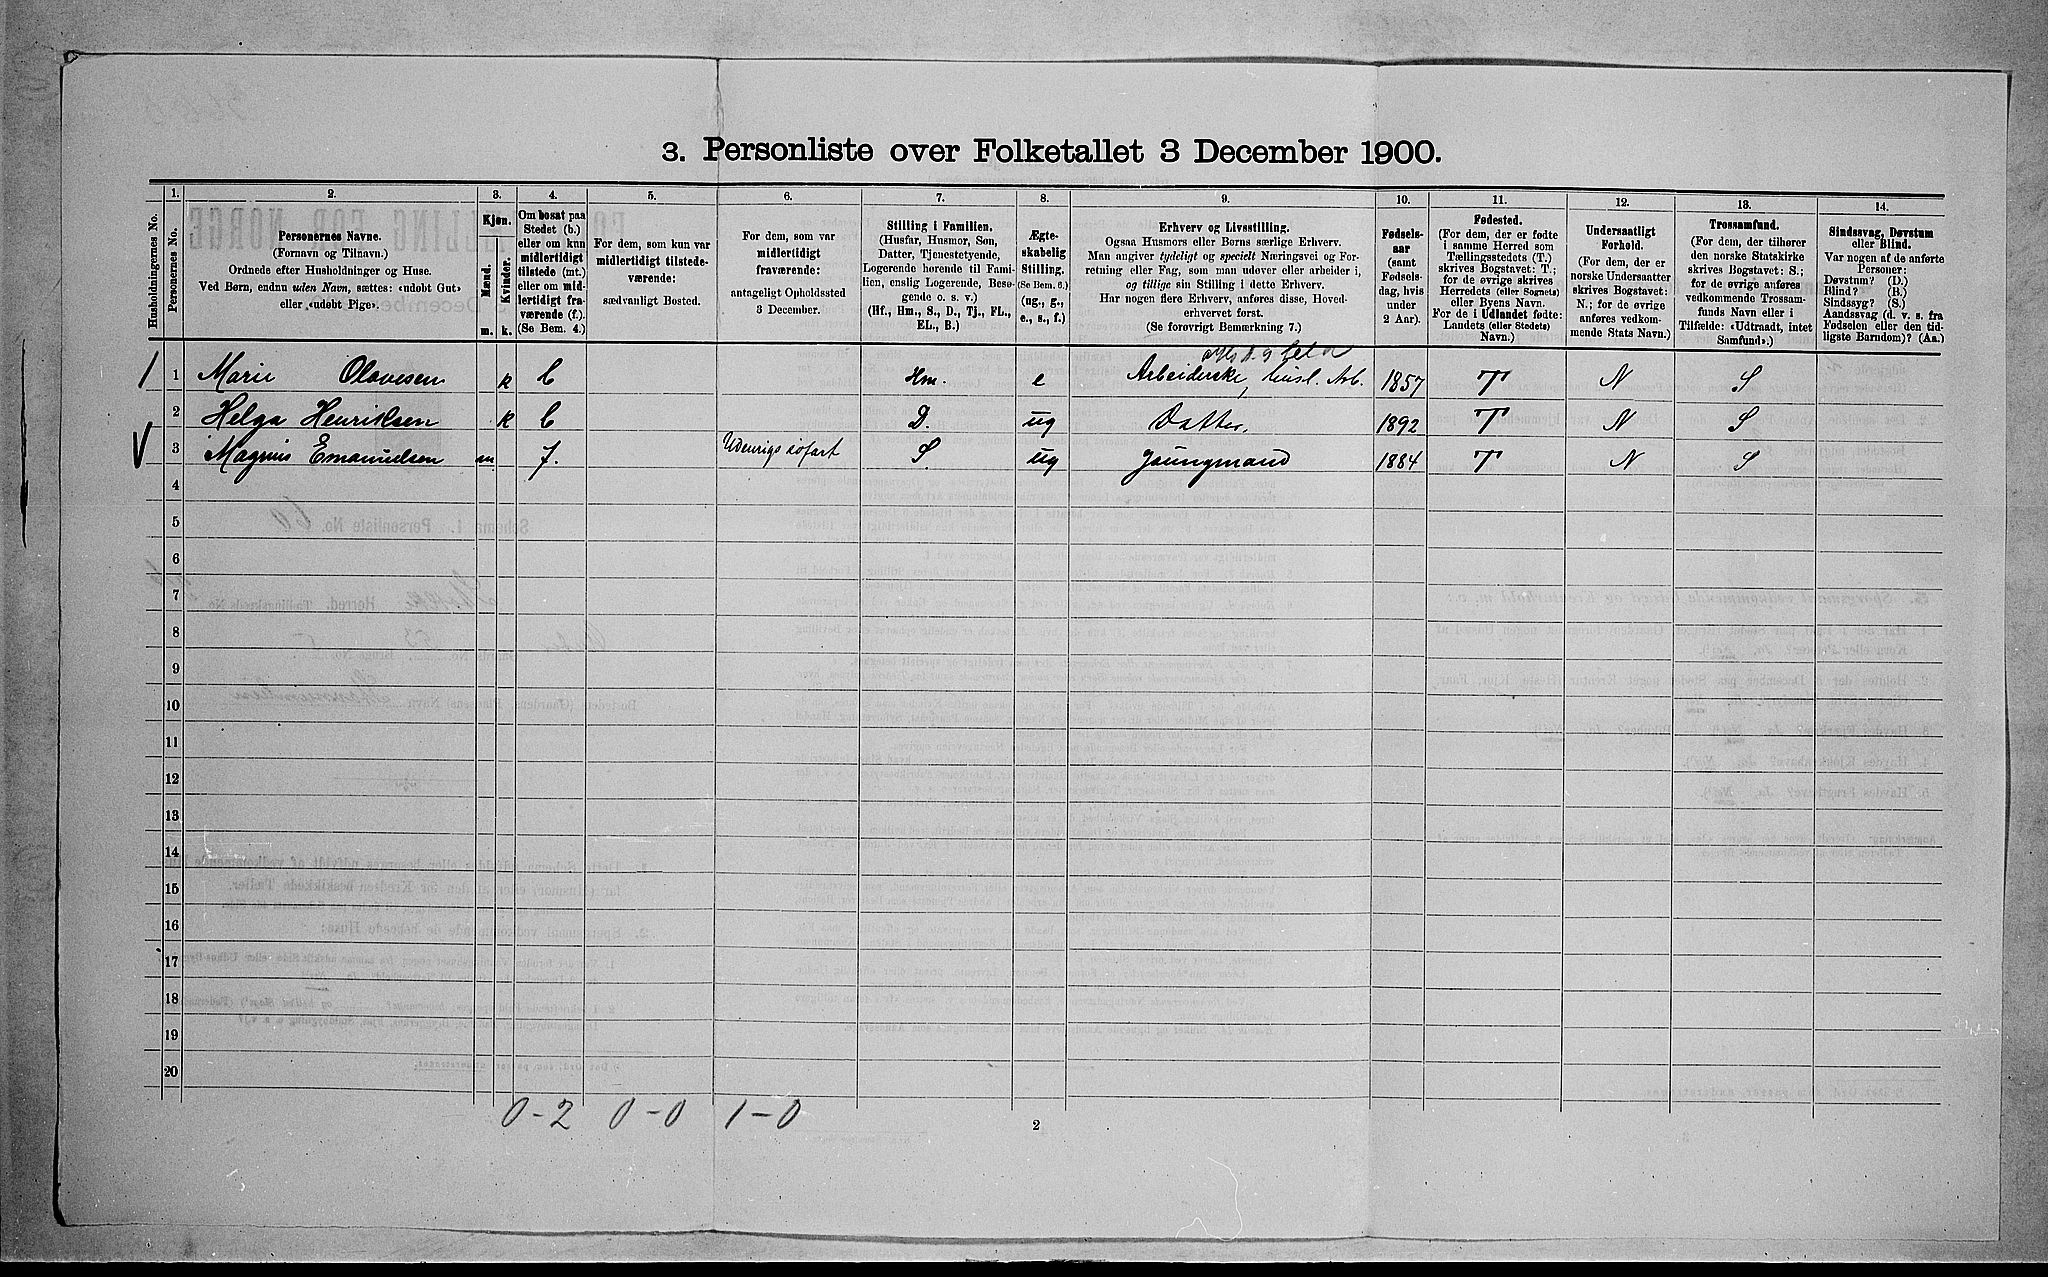 3. Personliste over Folketallet 3 December 1900.
1. 2. 3. 4. 5. 6. 7. 8. 9. 10. 11. 12. 13. 14.
Husholdningernes No.
Personernes No.
Personernes Navne.
(Fornavn og Tilnavn.)
Ordnede efter Husholdninger og Huse.
Ved Børn, endnu uden Navn, sættes: «udøbt Gut»
eller «udøbt Pige».
Kjøn.
Mænd.
Kvinder.
m. k.
Om bosat paa
Stedet (b.)
eller om kun
midlertidigt
tilstede (mt.)
eller om mid-
lertidigt fra-
værende (f.).
(Se Bem. 4.)
For dem, som kun var
midlertidigt tilstede-
værende:
sædvanligt Bosted.
For dem, som var
midlertidigt
fraværende:
antageligt Opholdssted
3 December.
Stilling i Familien.
(Husfar, Husmor, Søn,
Datter, Tjenestetyende,
Logerende hørende til Fami-
lien, enslig Logerende, Besø-
gende o. s. v.)
(Hf., Hm., S., D., Tj., FL.,
EL., B.)
Ægte-
skabelig
Stilling.
(Se Bem. 6.)
(ug., g.,
e., s., f.)
Erhverv og Livsstilling.
Ogsaa Husmors eller Børns særlige Erhverv.
Man angiver tydeligt og specielt Næringsvei og For-
retning eller Fag, som man udøver eller arbeider i,
og tillige sin Stilling i dette Erhverv.
Har nogen flere Erhverv, anføres disse, Hoved-
erhvervet først.
(Se forøvrigt Bemærkning 7.)
Fødsels-
aar
(samt
Fødsels-
dag, hvis
under
2 Aar).
Fødested.
(For dem, der er fødte
i samme Herred som
Tællingsstedets (T.)
skrives Bogstavet: T.;
for de øvrige skrives
Herredets (eller Sognets)
eller Byens Navn.
For de i Udlandet fødte:
Landets (eller Stedets)
Navn.)
Undersaatligt
Forhold.
(For dem, der er
norske Undersaatter
skrives Bogstavet:
N.; for de øvrige
anføres vedkom-
mende Stats Navn.)
Trossamfund.
(For dem, der tilhører
den norske Statskirke
skrives Bogstavet: S.;
for de øvrige anføres
vedkommende Trossam-
funds Navn eller i
Tilfælde: «Udtraadt, intet
Samfund».)
Sindssvag, Døvstum
eller Blind.
Var nogen af de anførte
Personer:
Døvstum? (D.)
Blind? (B.)
Sindssyg? (S.)
Aandssvag (d. v. s. fra
Fødselen eller den tid-
ligste Barndom)? (Aa.)
1 1 Marie Olavesen k b Hm. e Arbeiderske, husl. Arb. 1857 T N S
2 Helga Henriksen k b D. ug Datter. 1892 T N S
3 Magnus Emanuelsen m f. Udenrigs søfart S ug Joungmand 1884 T N S
4
5
6
7
8
9
10
11
12
13
14
15
16
17
18
19
20
0-2 0-0 1-0
2